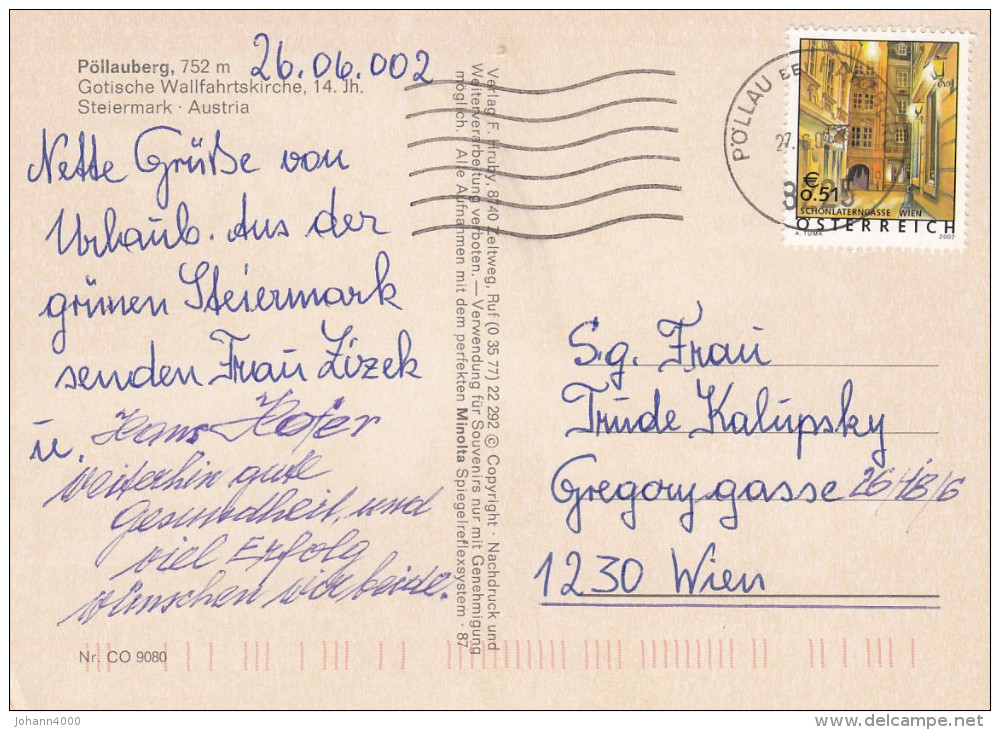 Pöllauberg, 752 m
Gotische Wallfahrtskirche, 14. Jh.
Steiermark · Austria
26.06.002
Nette Grüße von
Urlaub. Aus der
grünen Steiermark
senden Frau Zizek
u. Hans Hofer
weiterhin gute
Gesundheit, und
viel Erfolg
wünschen wir beide.
Nr. CO 9080
Verlag F. Hruby, 8740 Zeltweg, Ruf (0 35 77) 22 292 © Copyright · Nachdruck und
Weiterverarbeitung verboten. — Verwendung für Souvenirs nur mit Genehmigung
möglich. Alle Aufnahmen mit dem perfekten Minolta Spiegelreflexsystem · 87
PÖLLAU
€
0.51
SCHÖNLATERNGASSE WIEN
ÖSTERREICH
A. TUMA 2002
S.g. Frau
Trude Kalupsky
Gregorygasse 26/18/6
1230 Wien
Johann4000
delcampe.net